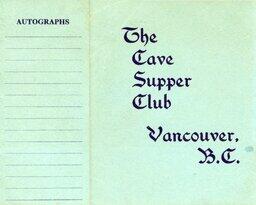 AUTOGRAPHS
The
Cave
Supper
Club
Vancouver,
B.C.